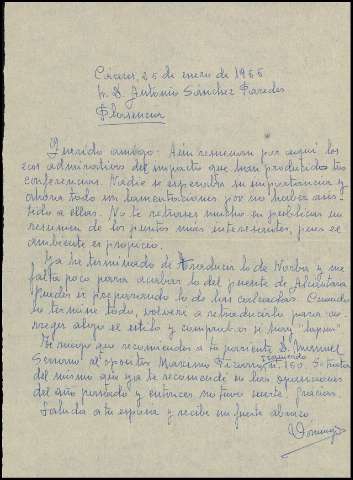 Cáceres, 25 de enero de 1966
Sr. D. Antonio Sánchez Paredes
Plasencia
Querido amigo: Aún resuenan por aquí los
ecos admirativos del impacto que han producido tus
conferencias. Nadie se esperaba su importancia y
ahora todo son lamentaciones por no haber asis-
tido a ellas. No te retrases mucho en publicar un
resumen de los puntos más interesantes, pues el
ambiente es propicio.
Ya he terminado de traducir lo de Norba y me
falta poco para acabar lo del puente de Alcántara
Puedes ir preparando lo de las calzadas. Cuando
lo termine todo, volveré a retraducirlo para co-
rregir algo el estilo y comprobar si hay "lapsus"
Te ruego que recomiendes a tu pariente D. Manuel
Serrano al opositor Maximo Pizarro Izquierdo, n. 150. Se trata
del mismo que ya te recomendé en las oposiciones
del año pasado y entonces no tuvo suerte. Gracias.
Saluda a tu esposa y recibe un fuerte abrazo
Domingo